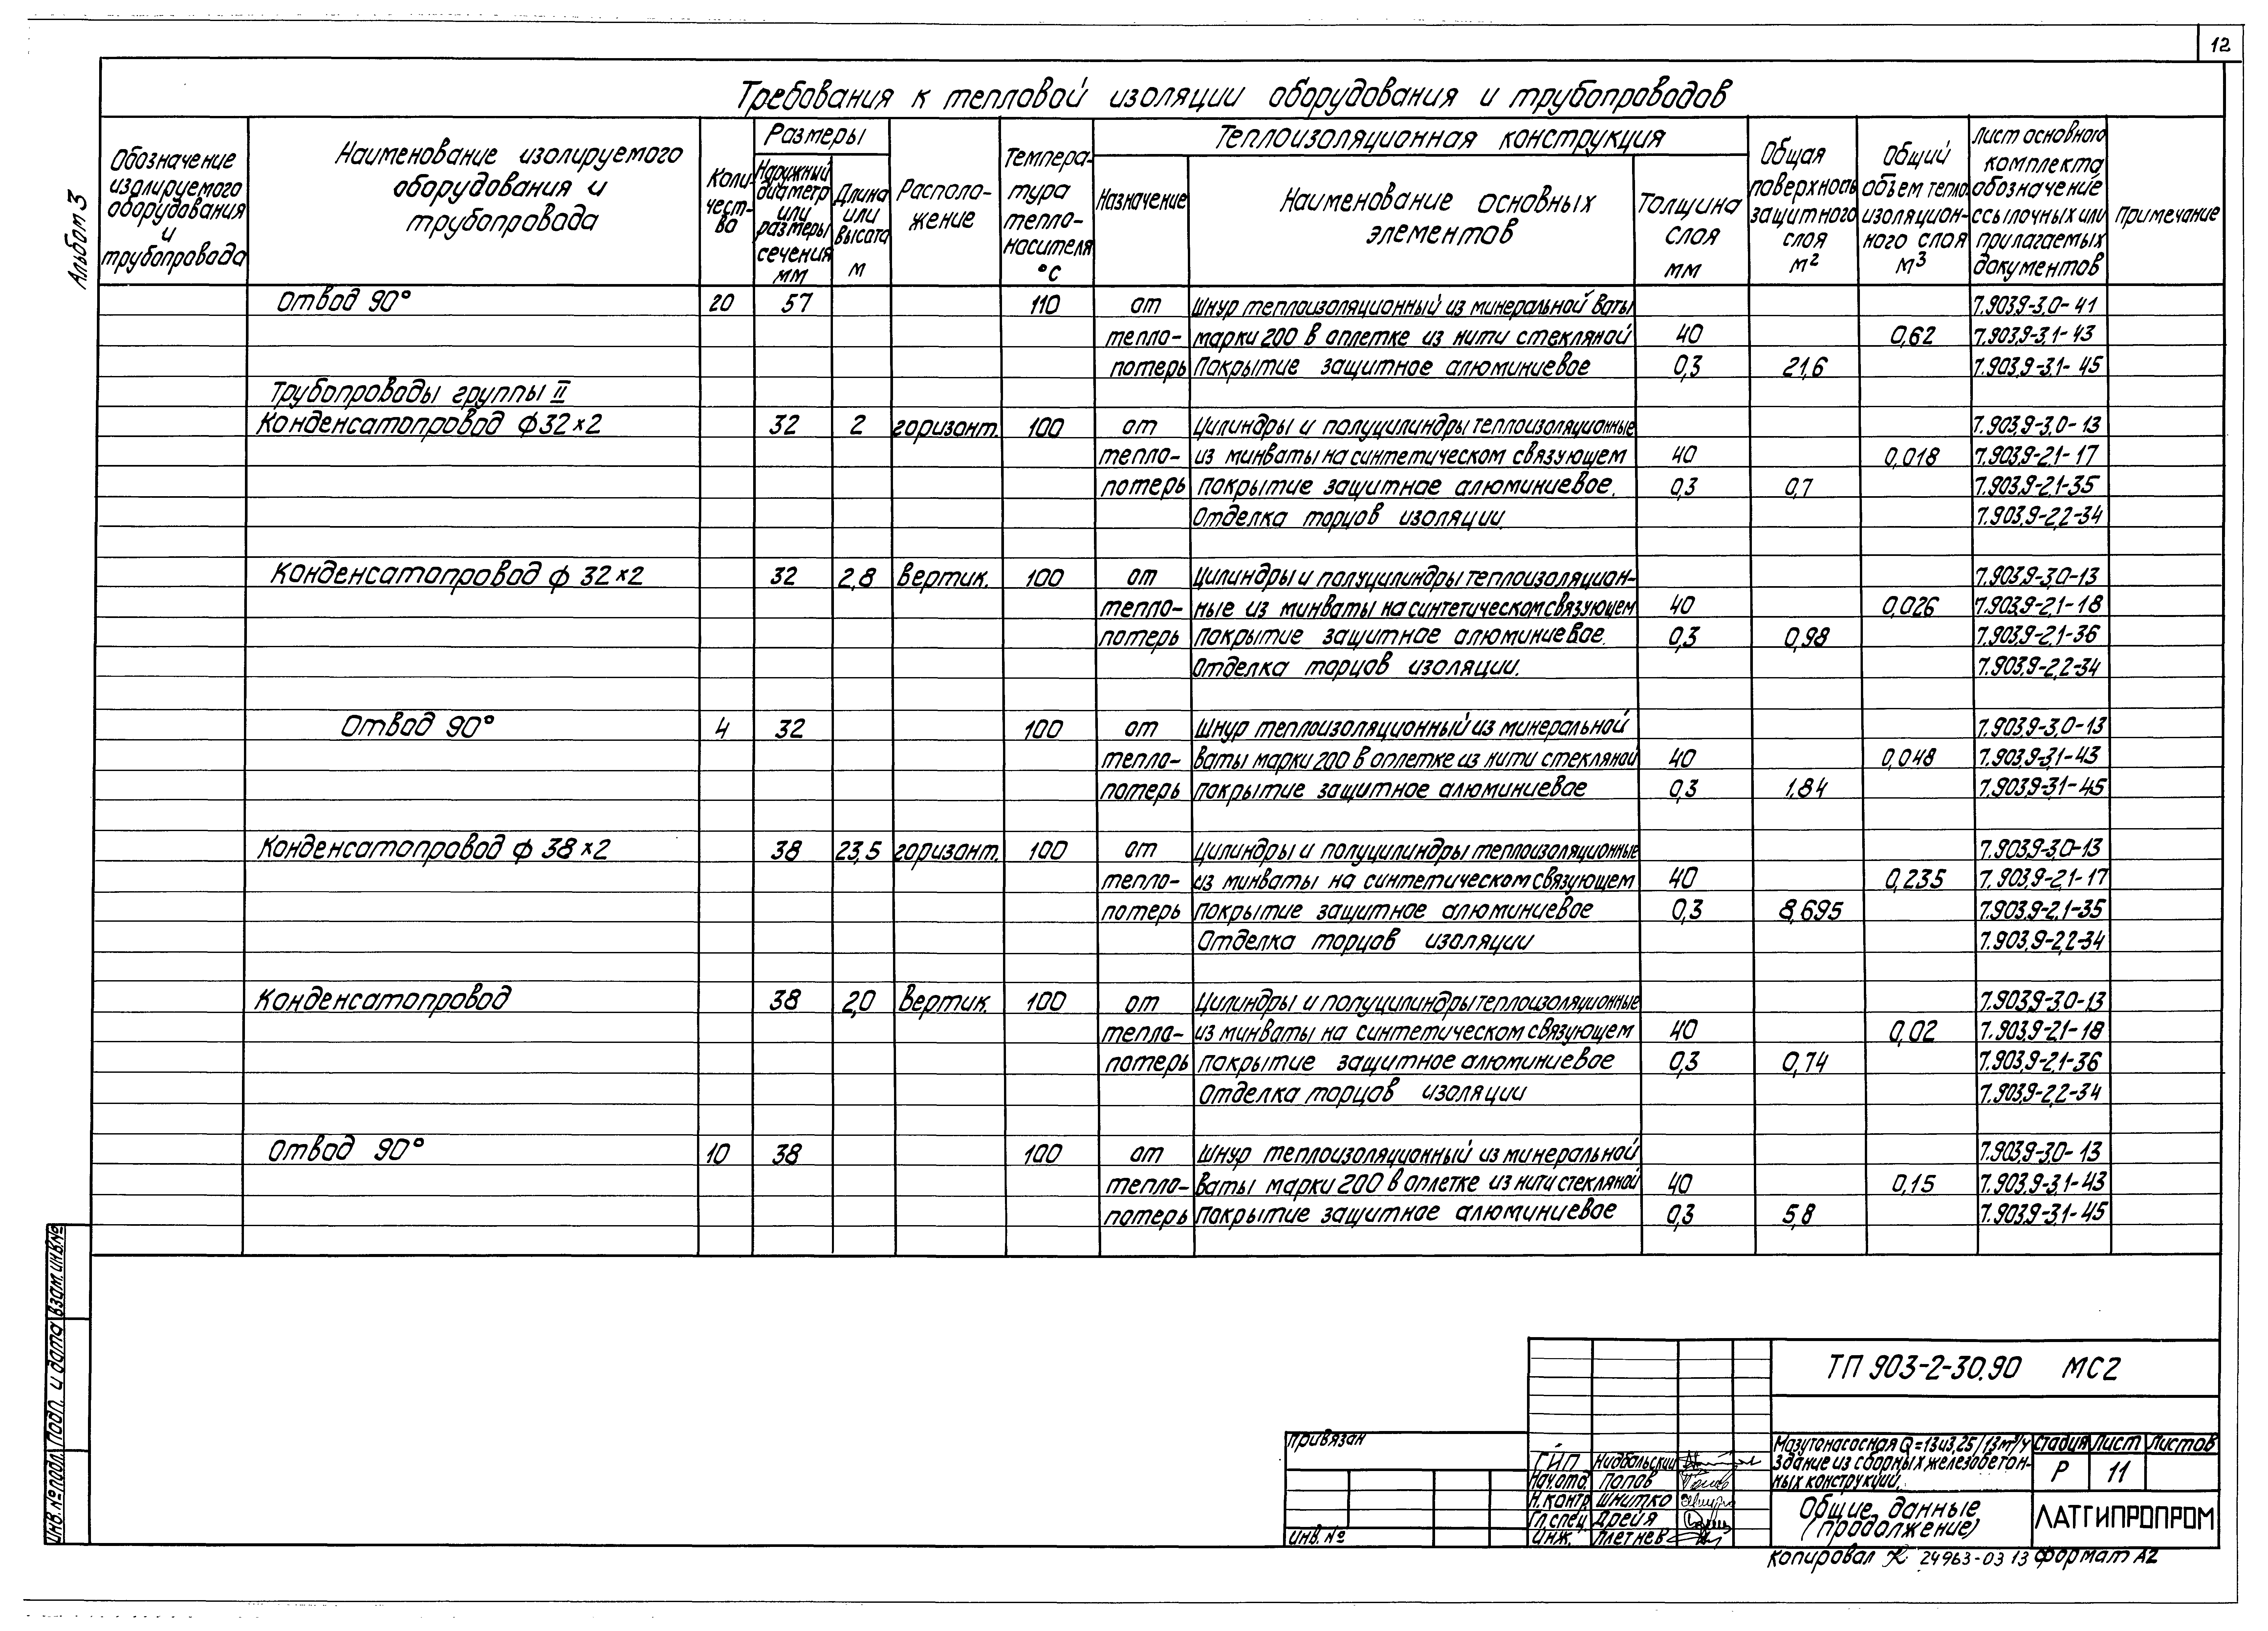 12
Альбом 3
Требования к тепловой изоляции оборудования и трубопроводов
Обозначение изолируемого оборудования и трубопровода
Наименование изолируемого оборудования и трубопровода
Коли-чест-во
Размеры
Наружный диаметр или размеры сечения мм
Длина или высота м
Располо-жение
Темпера-тура тепло-носителя °С
Теплоизоляционная конструкция
Назначение
Наименование основных элементов
Толщина слоя мм
Общая поверхность защитного слоя м2
Общий объем тепло изоляцион-ного слоя м3
Лист основного комплекта, обозначение ссылочных или прилагаемых документов
Примечание
Отвод 90° 20 57 110 от Шнур теплоизоляционный из минеральной ваты 7.903.9-3.0-41
тепло- марки 200 в оплетке из нити стекляной 40 0,62 7.903.9-3.1-43
потерь Покрытие защитное алюминиевое 0,3 21,6 7.903.9-3.1-45
Трубопроводы группы II
Конденсатопровод ф32×2 32 2 горизонт. 100 от Цилиндры и полуцилиндры теплоизоляционные 7.903.9-3.0-13
тепло- из минваты на синтетическом связующем 40 0,018 7.903.9-2.1-17
потерь Покрытие защитное алюминиевое. 0,3 0,7 7.903.9-2.1-35
Отделка торцов изоляции. 7.903.9-2.2-34
Конденсатопровод ф 32×2 32 2,8 вертик. 100 от Цилиндры и полуцилиндры теплоизоляцион- 7.903.9-3.0-13
тепло- ные из минваты на синтетическом связующем 40 0,026 7.903.9-2.1-18
потерь Покрытие защитное алюминиевое. 0,3 0,98 7.903.9-2.1-36
Отделка торцов изоляции. 7.903.9-2.2-34
Отвод 90° 4 32 100 от Шнур теплоизоляционный из минеральной 7.903.9-3.0-13
тепло- ваты марки 200 в оплетке из нити стекляной 40 0,048 7.903.9-3.1-43
потерь Покрытие защитное алюминиевое 0,3 1,84 7.903.9-3.1-45
Конденсатопровод ф 38×2 38 23,5 горизонт. 100 от Цилиндры и полуцилиндры теплоизоляционные 7.903.9-3.0-13
тепло- из минваты на синтетическом связующем 40 0,235 7.903.9-2.1-17
потерь Покрытие защитное алюминиевое 0,3 8,695 7.903.9-2.1-35
Отделка торцов изоляции 7.903.9-2.2-34
Конденсатопровод 38 2,0 вертик. 100 от Цилиндры и полуцилиндры теплоизоляционные 7.903.9-3.0-13
тепло- из минваты на синтетическом связующем 40 0,02 7.903.9-2.1-18
потерь Покрытие защитное алюминиевое 0,3 0,74 7.903.9-2.1-36
Отделка торцов изоляции 7.903.9-2.2-34
Отвод 90° 10 38 100 от Шнур теплоизоляционный из минеральной 7.903.9-3.0-13
тепло- ваты марки 200 в оплетке из нити стекляной 40 0,15 7.903.9-3.1-43
потерь Покрытие защитное алюминиевое 0,3 5,8 7.903.9-3.1-45
Взам. инв.№
Подп. и дата
Инв. № подл.
Привязан
Инв. №
ГИП Нидбальский
Нач.отд. Попов
Н.контр. Шнитко
Гл.спец. Дрейя
Инж. Плетнев
ТП 903-2-30.90 МС2
Мазутонасосная Q=13и3,25/13м³/ч
Здание из сборных железобетон-
ных конструкций.
Стадия Лист Листов
Р 11
Общие данные
(продолжение)
ЛАТГИПРОПРОМ
Копировал 24963-03 13 Формат А2